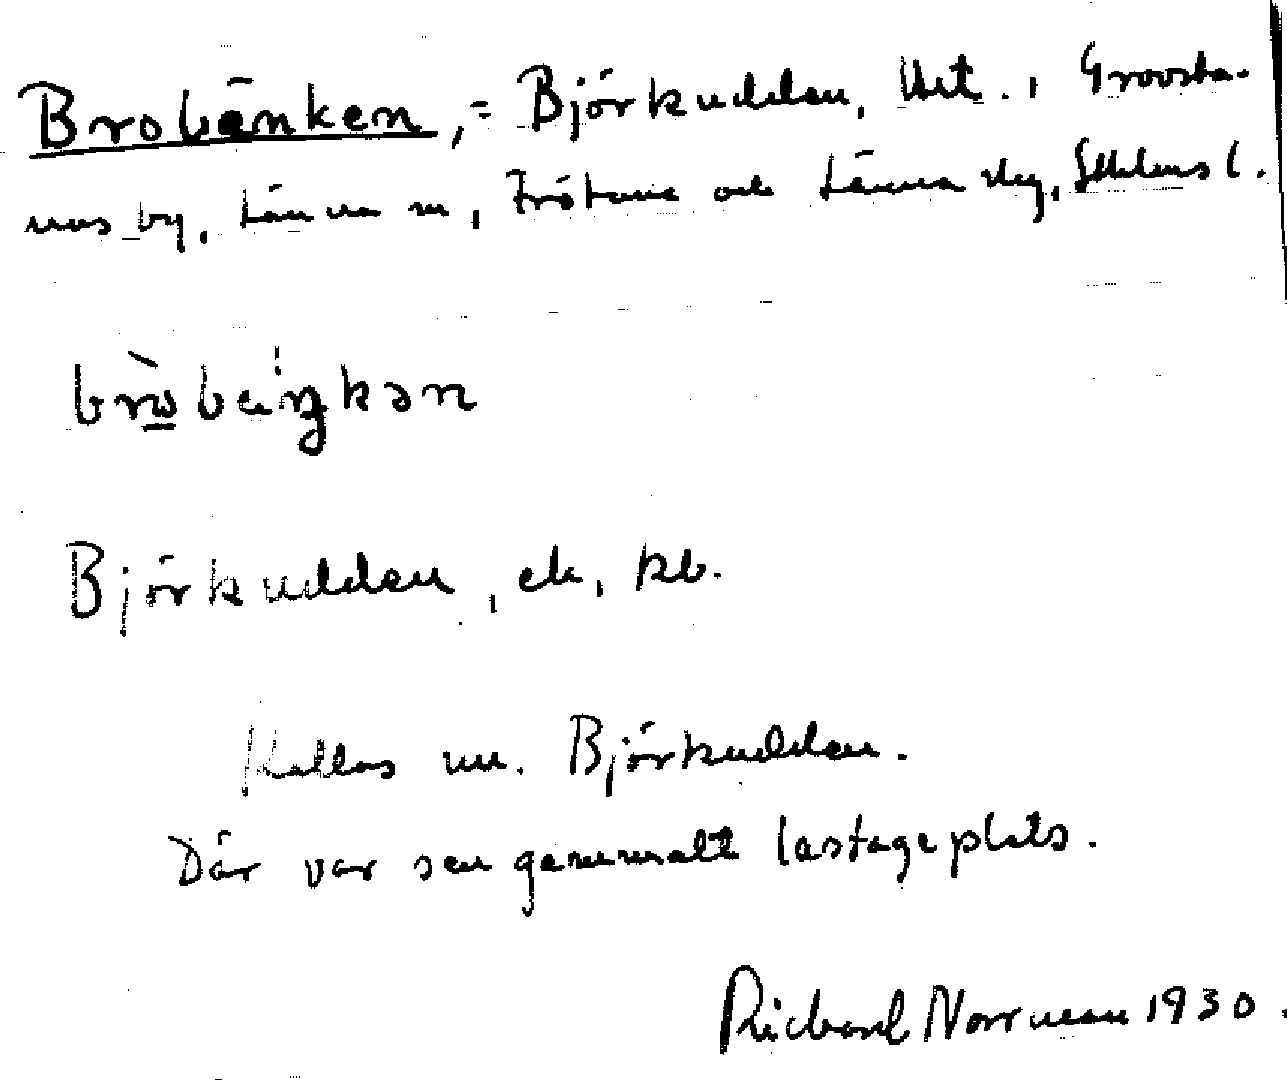 Brobänken, = Björkudden, Utt., Grovsta-
nus by, Länna sn, Frötuna och Länna skg, Sthlms l.
brὼbäŋkən
Björkudden, ek, kb.
Kallas nu. Björkudden.
Där var sen gammalt lastageplats.
Richard Norrman 1930.